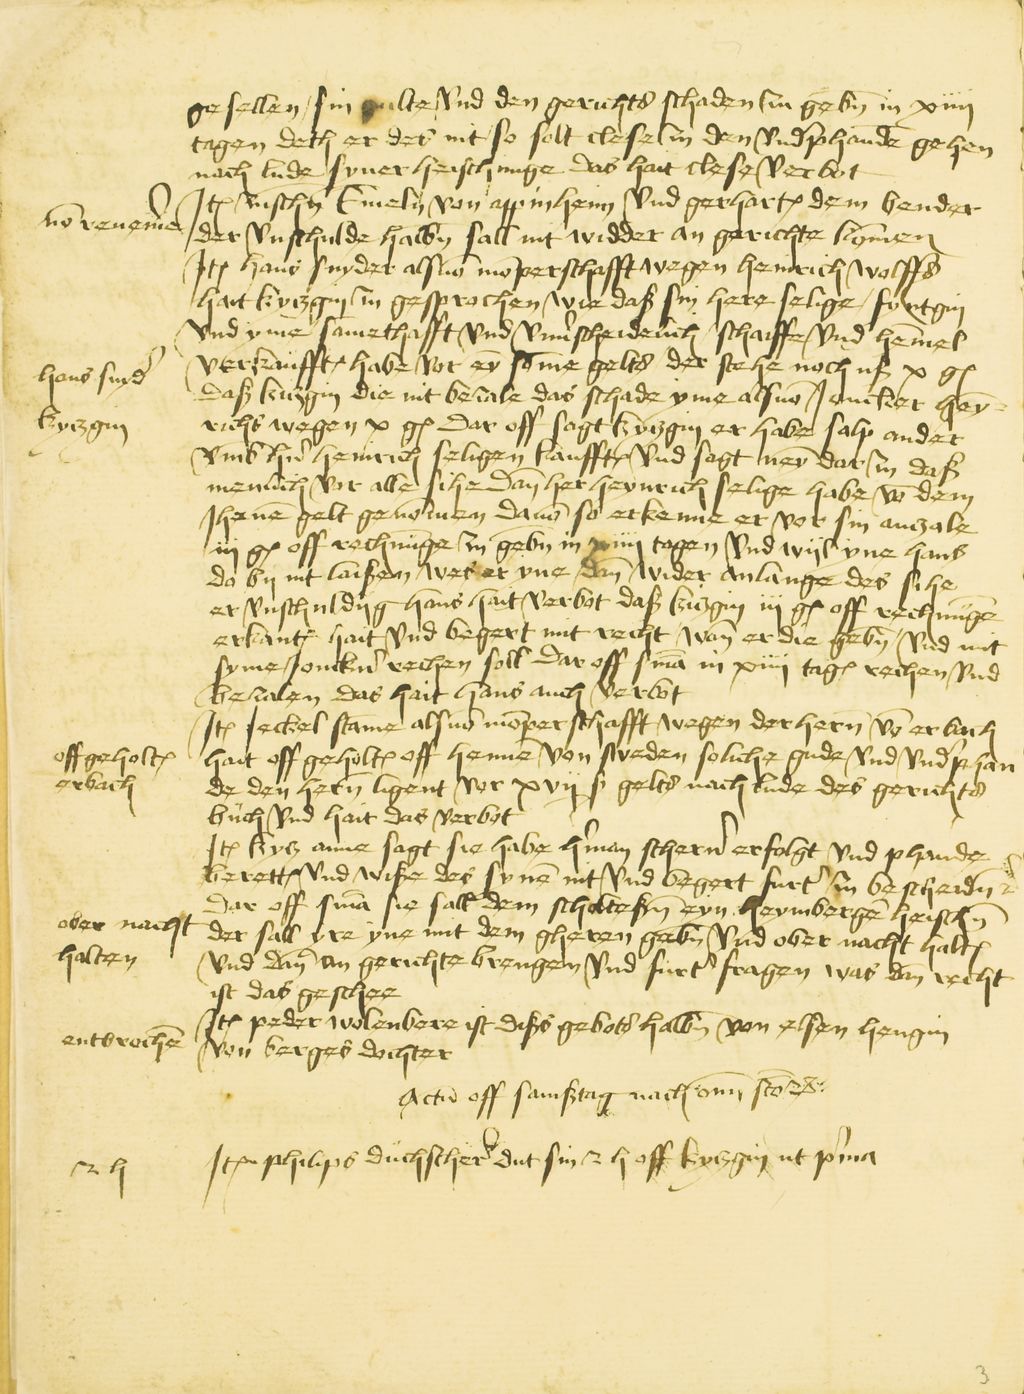 gesellen sin gulte und den gerichts schaden zu gebn in xiiii
tagen dethe er des nit so solt clese zu den underphande gehen
nach lude syner heischunge das hait clese verbot
It zuschen Emeln von appinheim und gerhart dem bender
der unschulde halbn sall nit widder an gerichte komen
It hans snyder als mo͞perschafft wegen heinrich wolffs
hait kyczgin zu gesprochen wie daß sin here selige
und yme samethafft und unverscheidelich schaiffe und hemel
verkaufft habe vor ey some gelts der stehe noch uß x gl
daß kiczgin die nit bezale das schade yme Jonckher hey-
richs wegen x gl dar off sagt kyczgin er habe salp ander
umb her heinrich seligen kaufft und sagt ney dar zu daß
menlich vor alle sihe dan her heynrich selige habe vo dem
Ihenen gelt genomen davo so erkenne er vor sin anczale
iii gl off rechnunge zu gebn in xiiii tagen und wijl yne hans
da by nit laißen wes er yne dan wider anlange des sihe
er unschuldig hans hait verbot daß kiczgin iii gl off rechnunge
erkant hait und begert mit recht wan er die gebn und mit
syme Jonckher rechen soll Dar off sma in xiiii tage rechen und
bezalen das hait hans auch verbot
It Jeckel stame als mo͞perschafft wegen der hern vo erbach
hait off geholt off henne von sweden soliche gude und underphan
de den hern ligent vor xvij ß gelts nach lude des gerichts
buch und hait das verbot
It kycz anne sagt sie habe herman scherer erfolgt und phande
berett und wiße des synen nit und begert furter zu bescheidn
Dar off sma sie sall dem scholteßn eyn heymbergen heischn
der sall yre yne mit dem gheren gebn und ober nacht halt
und dan an gerichte brengen und furter fragen was dan recht
ist das geschee
It peder wolenbere ist dißs gebots halbn von elsen hengin
von berges dochter
Actu off samßtag nach omn scor
It philips duchscherer dut sin 2 h off kyczgin ut prima
hans snyder
kyczgin
off geholt
erbach
ober nacht
halten
entbrochen
2 h
3